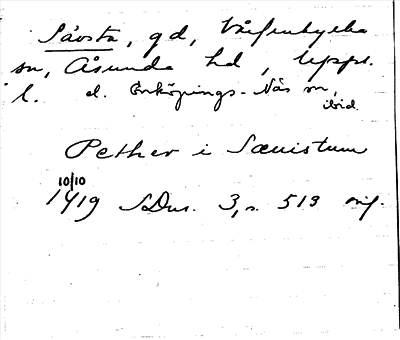 Sävsta, gd, Vårfrukyrka
sn, Åsunda hd, Upps.
l. d. Enköpings-Näs sn,
ibid.
Pether i Sæuistum
10/10
1419 SDns. 3, s. 513 orig.